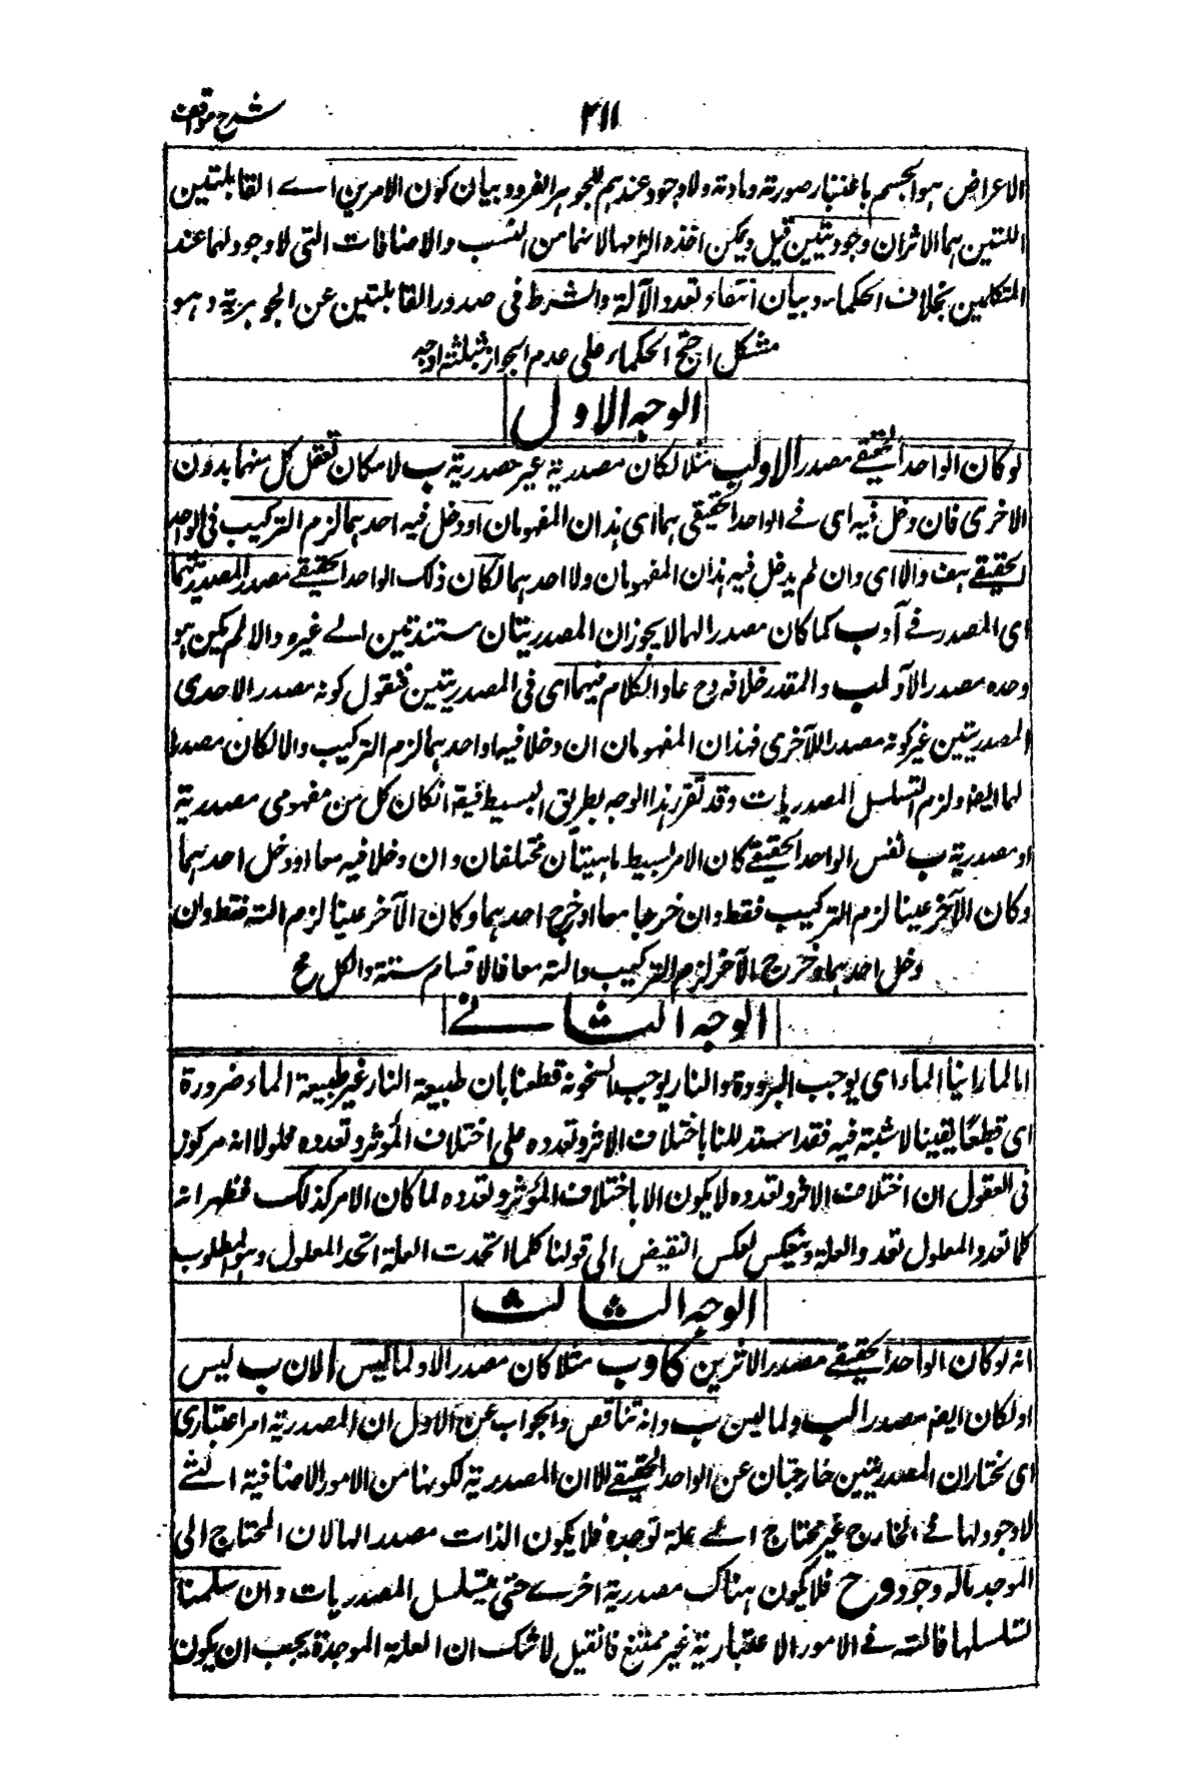 شرح مواقف
٢١١
الاعراض هو الجسم باعتبار صورته ومادته ولا وجود عندهم للجوهر الفرد وبيان كون الامرين اے القابلتين
اللتين هما الاثران وجوديتين قيل ويمكن اخذه الزاميا لانهما من النسب والاضافات التى لا وجود لها عند
المتكلمين بخلاف الحكماء وبيان انتفاء تعدد الآلة والشرط فى صدور القابلتين عن الجوهرية وهو
مشكل احتج الحكماء على عدم الجواز بثلثة اوجه
الوجه الاول
لو كان الواحد الحقيقے مصدرا لاولب مثلا لكان مصدرية ا غير مصدرية ب لامكان تعقل كل منهما بدون
الاخرى فان دخل فيه اى فے الواحد الحقيقى هما اى هذان المفهومان او دخل فيه احدهما لزم التركيب فى الواحد
الحقيقے هف والا اى وان لم يدخل فيه هذان المفهومان ولا احدهما لكان ذلك الواحد الحقيقے مصدر المصدريتهما
اى المصدر فے آوب كما كان مصدرا لهما لا يجوز ان المصدريتان مستندتين الے غيره والا لم يكن هو
وحده مصدرا لآولب والمقدر خلافه وح عاد الكلام فيهما اى فى المصدريتين فنقول كونه مصدرا لاحدى
المصدريتين غير كونه مصدرا للآخرى فهذان المفهومان ان دخلا فيه او احدهما لزم التركيب والا لكان مصدرا
لهما ايضا ولزم التسلسل المصدريات وقد تقرر هذا الوجه بطريق البسيط فيقه ان كان كل من مفهومى مصدرية
او مصدرية ب نفس الواحد الحقيقے كان الامر البسيط ماهيتان مختلفان وان دخلا فيه معا او دخل احدهما
وكان الآخر عينا لزم التركيب فقط وان خرجا معا او خرج احدهما وكان الآخر عينا لزم التسه فقط وان
دخل احدهما وخرج الآخر لزم التركيب والتسه معا فالاقسام ستة والكل مح
الوجه الثانے
انا لما راينا الماء اى يوجب البرودة والنار يوجب السخونة قطعنا بان طبيعة النار غير طبيعة الماء ضرورة
اى قطعًا يقينا لا شبهة فيه فقد استدللنا باختلاف الاثر وتعدده على اختلاف المؤثر وتعدده فلولا انه مركوز
فى العقول ان اختلاف الاثر وتعدده لا يكون الا باختلاف المؤثر وتعدده لما كان الامر كذلك فظهر انه
كلما تعدد المعلول تعدد العلة وينعكس بعكس النقيض الى قولنا كلما اتحدت العلة اتحد المعلول وهو المطلوب
الوجه الثالث
انه لو كان الواحد الحقيقے مصدرا لاثرين كآوب مثلا كان مصدرا لا ولما ليس ا لان ب ليس
ا ولكان ايضا مصدرا لب ولما ليس ب وانه تناقض والجواب عن الاول ان المصدرية امر اعتبارى
اى نختار ان المصدريتين خارجتان عن الواحد الحقيقے الا ان المصدرية لكونها من الامور الاضافية التے
لا وجود لها فے الخارج غير محتاج الے علة توجده فلا يكون الذات مصدرا لها لان المحتاج الى
الموجد ماله وجود وح فلا يكون هناك مصدرية اخرے حتى يتسلسل المصدريات وان سلمنا
تسلسلها فالتسه فے الامور الاعتبارية غير ممتنع فان قيل لا شك ان العلة الموجدة يجب ان يكون